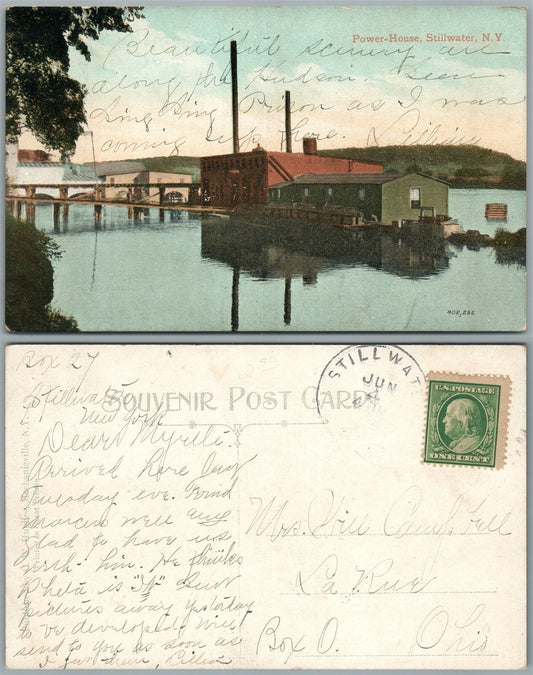 Power-House, Stillwater, N.Y.
Beautiful scenery are
along the Hudson. Seen
Sing Sing Prison as I was
coming up here. Lillian
402,222
Box 27
Stillwater
New York
SOUVENIR POST CARD
STILLWAT
JUN
U.S. POSTAGE
ONE CENT
Dear Myrtle:
Arived here last
Tuesday eve. Find
Marcus well and
glad to have us
with him. He thinks
Rheta is "It" Sent
pictures away yesterday
to be developed. Will
send to you as soon as
I get them, Lillian
Mrs. Will Campfell
La Rue
Box O. Ohio